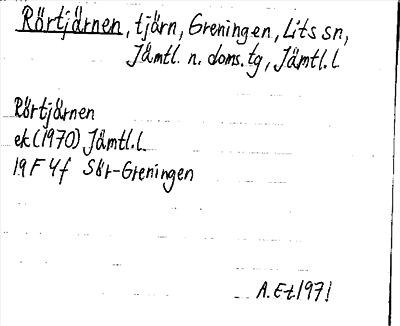 Rörtjärnen, tjärn, Greningen, Lits sn,
Jämtl. n. doms. tg, Jämtl. l
Rörtjärnen
ek (1970) Jämtl. l.
19 F 4 f Sör-Greningen
A. Et. 1971